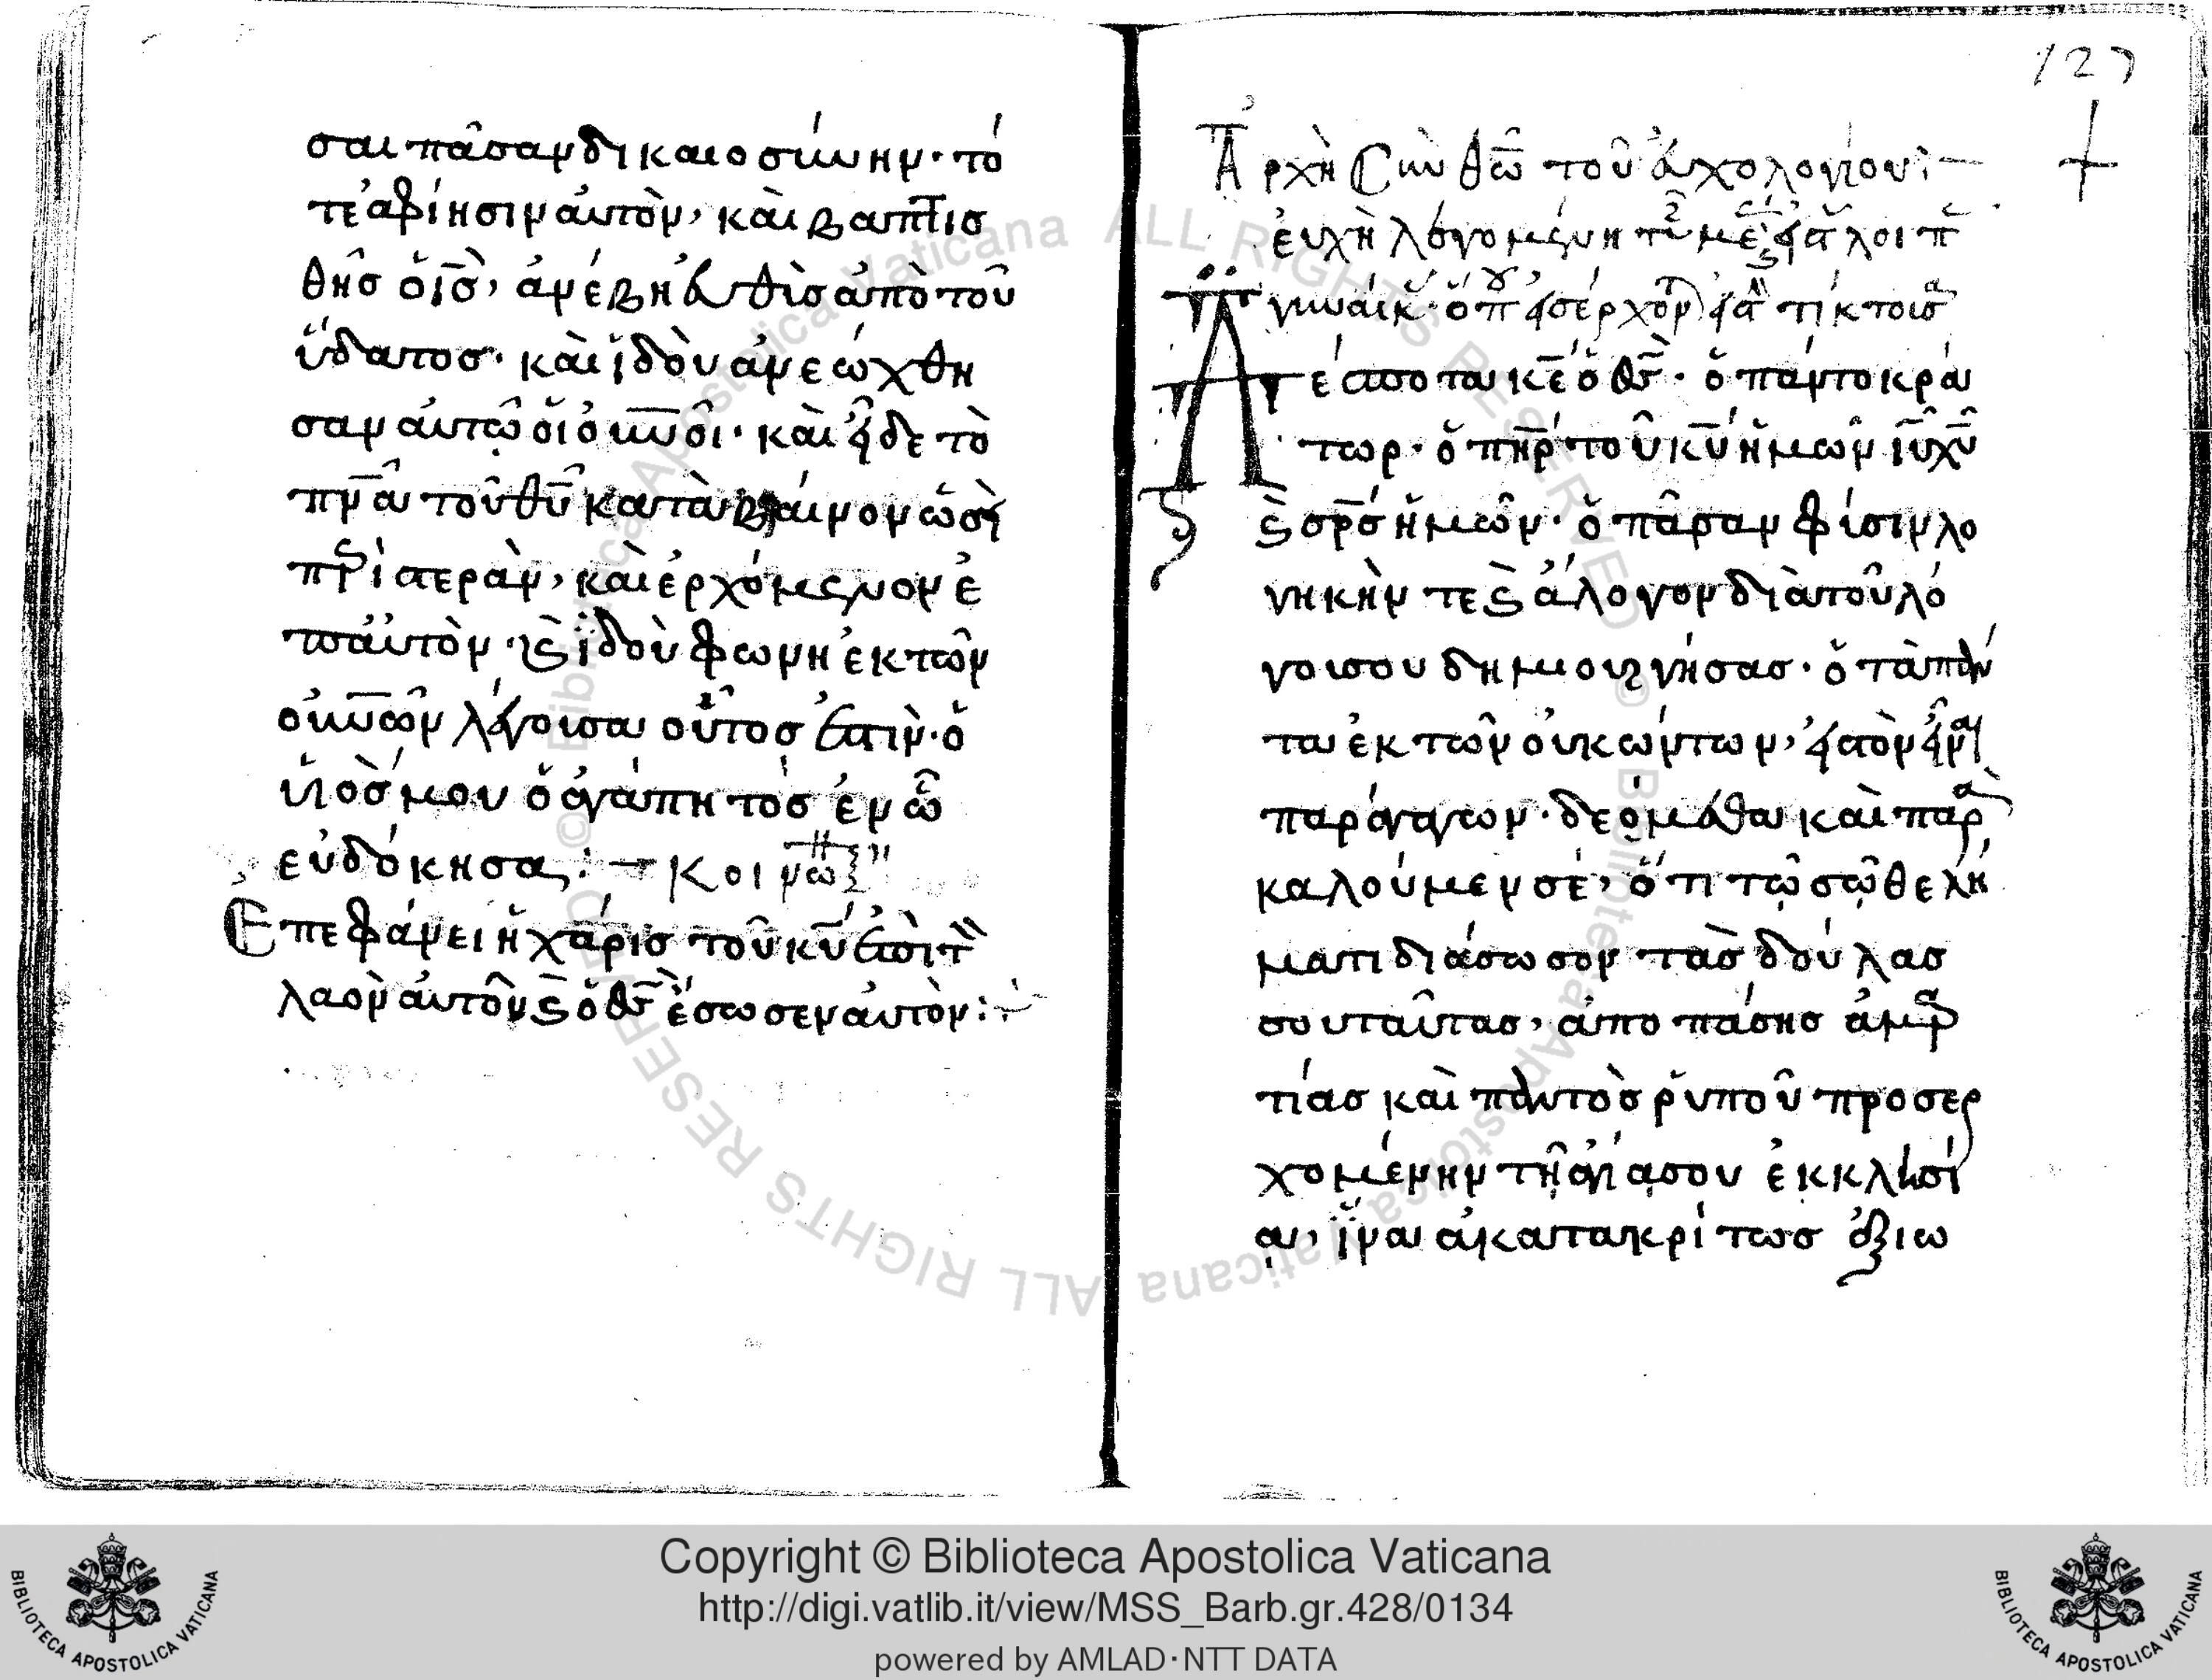 σαι πᾶσαν δικαιοσύνην· τό
τε ἀφίησιν αὐτὸν, καὶ βαπτισ
θῆς ὁ ισ̄, ἀνέβη εὐθὶς ἀπὸ τοῦ
ὕδατος· καὶ ϊδοὺ ἀνεώχθη
σαν αὐτῶ οἱ οὐνοῖ· καὶ εἶδε τὸ
πνᾱ τοῦ θῡ καταβαίνον ὡσὴ
περιστερὰν, καὶ ἐρχόμενον ἐ
π αὐτὸν· κ(αὶ) ϊδοὺ φωνη ἐκ τῶν
οὐνῶν λέγουσα οὗτος ἐστὶν· ὁ
ὑϊός μου ὁ ἀγάπητος ἐν ὧ
εὐδόκησα:
Επεφάνει ἡ χάρις τοῦ κῡ ἐπὶ τ
λαὸν αὐτοῦ κ(αὶ) ὁ θς̄ ἔσωσεν αὐτὸν:
127
Ἀρχὴ σὺν θῶ τοῦ εὐχολογίου:
εὐχὴ λεγομένη
Δέσποτα κε̄ ὁ θς̄· ὁ παντοκρά
τωρ· ὁ πηρ̄ τοῦ κῡ ἡμῶν ιῡ χῡ
κ(αὶ) σρ̄ς ἡμῶν· ὁ πᾶσαν φίσιν λο
γηκὴν τε κ(αὶ) ἄλογον διὰ τοῦ λό
γου σου δημιουργήσας· ὁ τὰ πάν
τα ἐκ τῶν οὐκ ώντων, εἰς τὸ εἶναι
παράγαγων· δεόμεθα καὶ παρα
καλούμεν σέ, ὅτι τῶ σῶ θελή
ματι διάσωσον τὰς δούλας
σου ταῦτας, ἀπο πάσης ἁμαρ
τίας καὶ παντὸς ῥυποῦ προσερ
χομένην τῆ ἁγία σου ἐκκλησί
α, ἵνα ἀκατακρίτως ἀξιω
Copyright © Biblioteca Apostolica Vaticana
http://digi.vatlib.it/view/MSS_Barb.gr.428/0134
powered by AMLAD·NTT DATA
BIBLIOTECA APOSTOLICA VATICANA
BIBLIOTECA APOSTOLICA VATICANA
© Biblioteca Apostolica Vaticana ALL RIGHTS RESERVED